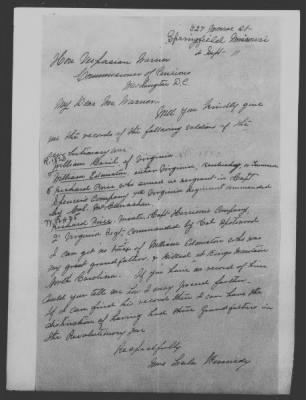 627 Monroe St.
Springfield Missouri
2 Sept. 11
Hon Vespasian Warner
Commissioner of Pensions
Washington D.C.
My Dear Mr Warner.
Will you kindly give
me the records of the following soldiers of the
Revolutionary war
William Basil of Virginia
William Edmiston either Virginia, Kentucky or Tennessee
Richard Price who served as sergeant in Capt
Spencers Company Virginia Regiment commanded
by Col McClenachan
Richard Price, Capt Harrisons Company
2" Virginia Regt, Commanded by Col
I can get no trace of William Edmiston who was
my great grandfather, & killed at Kings Mountain
North Carolina. If you have no record of him
Could you tell me how I may proceed further.
If I can find his record then I can have the
distinction of having had three Grandfathers in
the Revolutionary War
Respectfully
Mrs Lula Kennedy